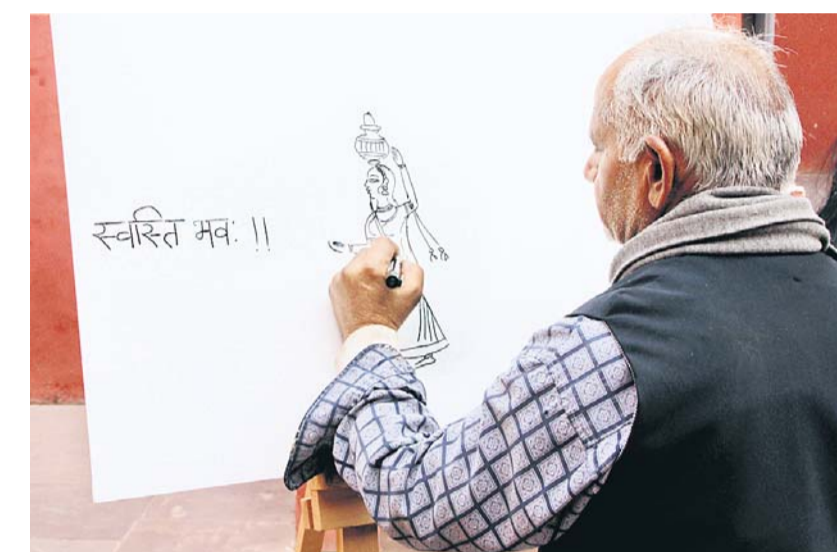 स्वस्ति भवः !!